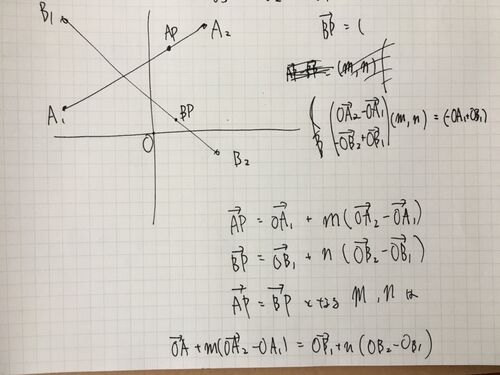 B₁
AP
A₂
A₁
BP
O
B₂
B⃗P⃗ = (
(m, n)
(O⃗A⃗₂ - O⃗A⃗₁
-O⃗B⃗₂ + O⃗B⃗₁) (m, n) = (-OA₁+OB₁)
A⃗P⃗ = O⃗A⃗₁ + m(O⃗A⃗₂ - O⃗A⃗₁)
B⃗P⃗ = O⃗B⃗₁ + n(O⃗B⃗₂ - O⃗B⃗₁)
A⃗P⃗ = B⃗P⃗ となる m, n は
O⃗A⃗ + m(O⃗A⃗₂ - OA₁) = O⃗B⃗₁ + n(OB₂ - OB₁)